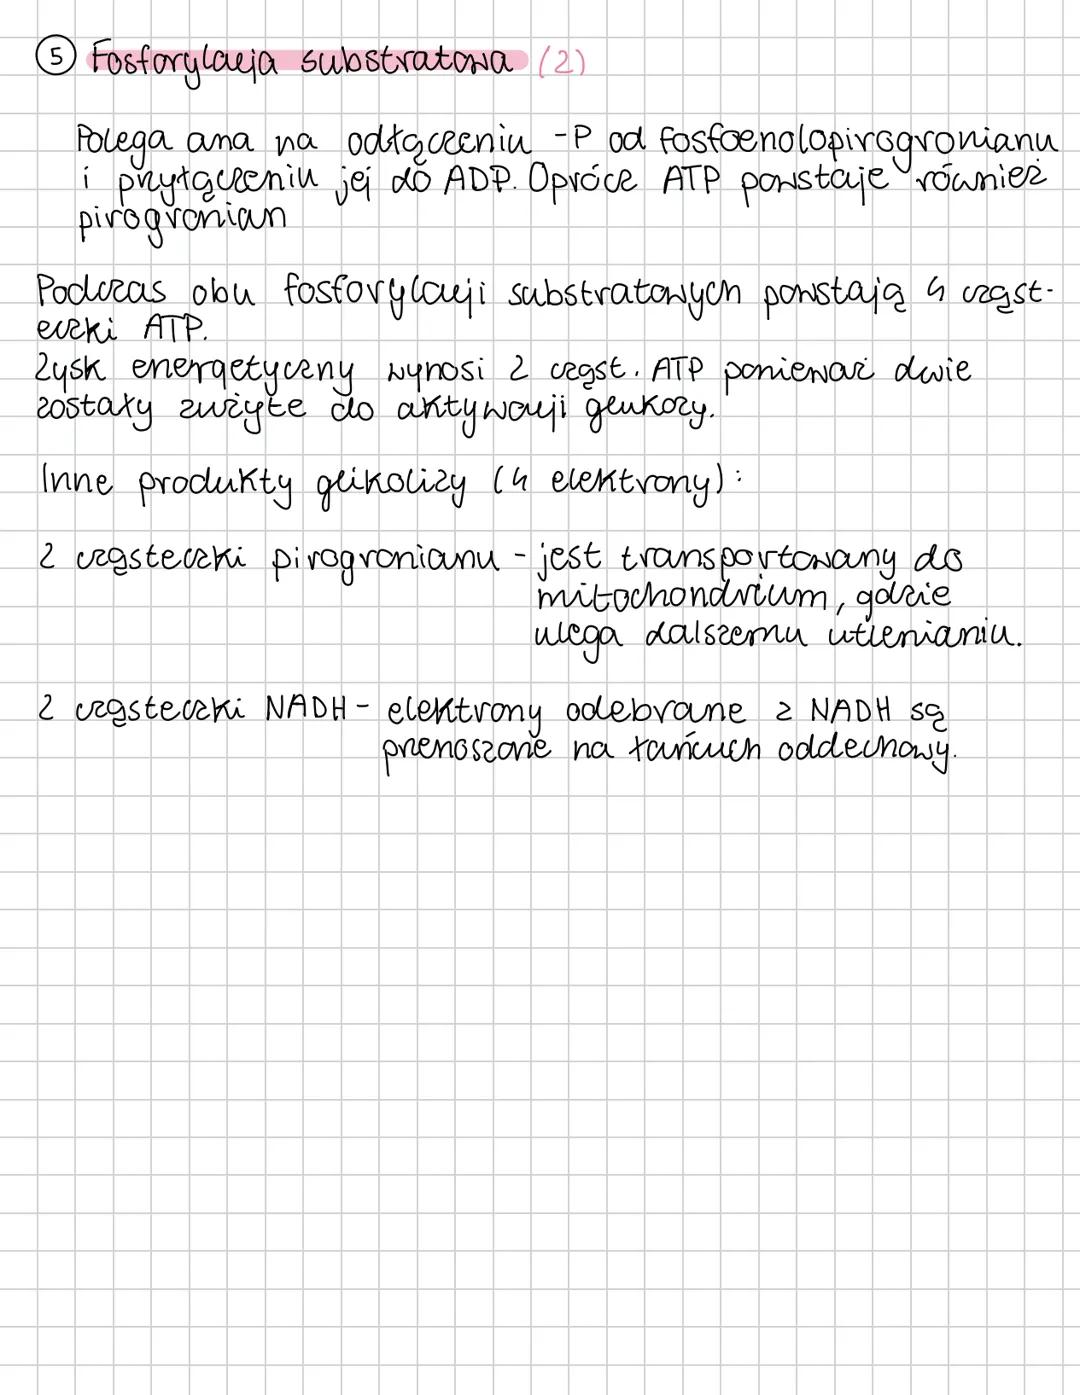 5 Fosforylacja substratowa (2)
Polega ona na odłączeniu -P od fosfoenolopirogronianu
i przyłączeniu jej do ADP. Oprócz ATP powstaje również
pirogronian
Podczas obu fosforylacji substratowych powstają 4 cząst-
eczki ATP.
Zysk energetyczny wynosi 2 cząst. ATP ponieważ dwie
zostały zużyte do aktywacji glukozy.
Inne produkty glikolizy (4 elektrony):
2 cząsteczki pirogronianu - jest transportowany do
mitochondrium, gdzie
ulega dalszemu utlenianiu.
2 cząsteczki NADH - elektrony odebrane z NADH są
przenoszone na łańcuch oddechowy.